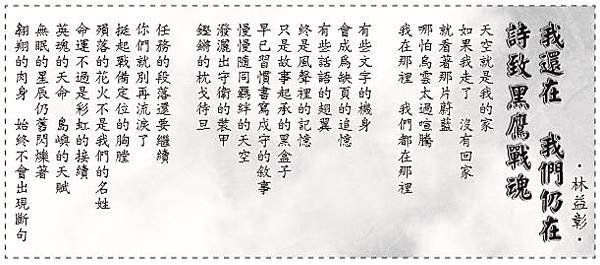 我還在　我們仍在
詩致黑鷹戰魂
．林益彰．
天空就是我的家
如果我走了　沒有回家
就看著那片蔚藍
哪怕烏雲太過喧騰
我在那裡　我們都在那裡
有些文字的機身
會成為缺頁的追憶
有些話語的翅翼
終是風聲裡的記憶
只是故事起承的黑盒子
早已習慣書寫戍守的敘事
慢慢隨同羈絆的天空
潑灑出守衛的裝甲
鏗鏘的枕戈待旦
任務的段落還要繼續
你們就別再流淚了
挺起戰備定位的胸膛
殞落的花火不是我們的名姓
命運不過是彩虹的接續
英魂的天命　島嶼的天賦
無眠的星辰仍舊閃爍著
翱翔的肉身　始終不會出現斷句